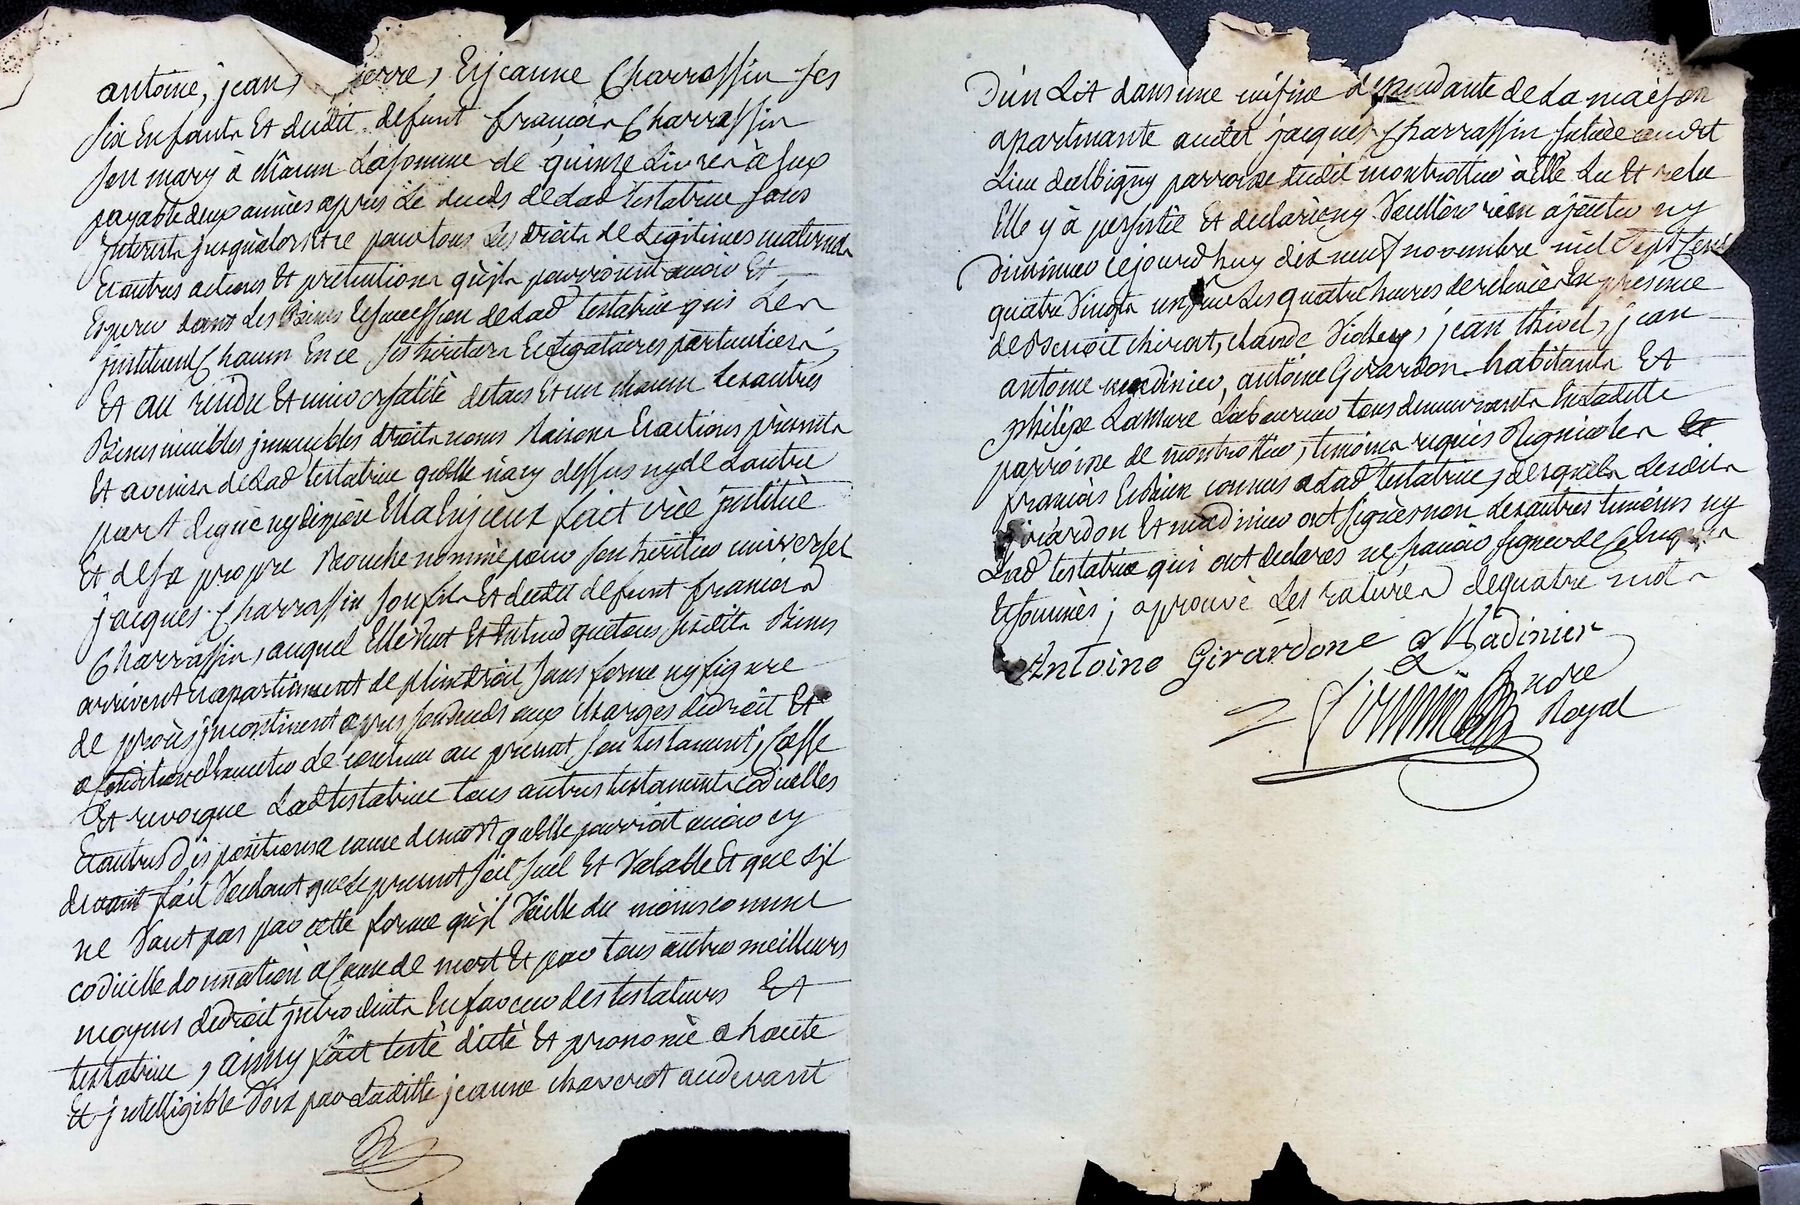 antoine, jean, pierre, Et jeanne Charrassin ses
six Enfants Et dudit defunt françois Charrassin
son mary à chacun La somme de quinze Livres à Eux
payable deux années apres Le deceds de lad testatrice sans
Interets jusqualors Et ce pour tous Les droits de Legitimes maternels
Et autres actions Et pretentions qu'ils pourroient avoir Et
Esperer dans Les Biens Et succession de lad testatrice qui Les
instituent Chacun En ce ses heritiers Et Legataires particuliers,
Et au residu Et universalité de tous Et un chacun ses autres
Biens meubles jmmeubles droits noms Raisons Et actions présents
Et avenirs de Lad testatrice qu'elle n'a cy dessus ny de L'autre
part legué ny disposé Elle a Enjceux fait créé jnstitué
Et de sa propre Bouche nommé pour son héritier universel
jacques Charrassin son fils Et dudit defunt françois
Charrassin, auquel Elle veut Et Entend que tous sesdits Biens
arrivent Et apartiennent de plein droit sans forme ny figure
de procès jncontinent apres son deceds aux charges de droit Et
a Condition d'executer de contenu au present son testament, Casse
Et revocque Lad testatrice tous autres testaments codicilles
Et autres dispositions a cause de mort qu'elle pourroit avoir cy
devant fait Voulant que Le present soit seul Et Valable Et que s'jl
ne Vaut pas par cette forme qu'jl Vaille du moins comme
codicille donnation a Cause de mort Et par tous autres meilleurs
moyens de droit jntroduits En faveur des testateurs Et
testatrice, ainsy fait testé dicté Et prononcé a haute
Et jntelligible Voix par Laditte jeanne chaverot audevant
D'un Lit dans une cuisine dependante de La maison
apartenante audit jacques Charrassin située audit
Lieu d'albigny parroisse dudit montrottier à Elle Lu Et relu
Elle y à persisté Et declaré ny Vouloir rien ajouter ny
diminuer cejourd'huy dix neuf novembre mil sept Cent
quatre Vingts un sur Les quatre heures de relevée En presence
de Benoit chirat, claude Vialley, jean thivel, jean
antoine madinier, antoine Girardon habitants Et
philipe Lamure Laboureur tous demeurants En Laditte
parroisse de montrottier, temoins requis Regnicoles Et
françois Et Bien connus a Lad testatrice, desquels Lesdits
Girardon Et madinier ont signé non Les autres temoins ny
Lad testatrice qui ont declarés ne sçavoir signer de ce Enquis
Et sommés; aprouvé Les ratures de quatre mots
Antoine Girardone a Madinier
nore
Royal